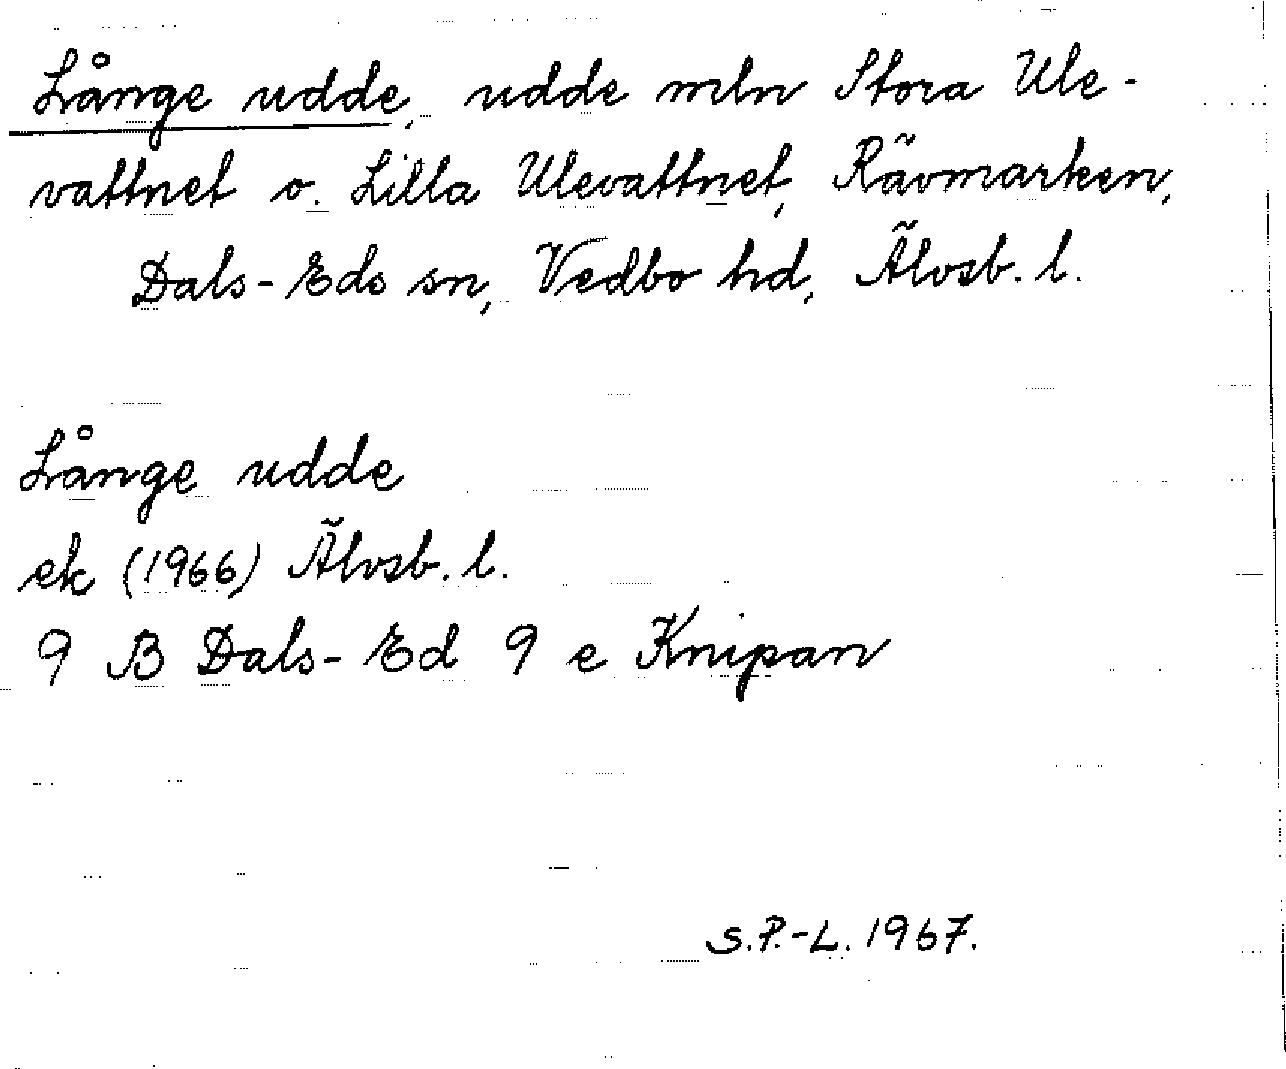 Långe udde, udde mln Stora Ule-
vattnet o. Lilla Ulevattnet, Rävmarken,
Dals-Eds sn, Vedbo hd, Älvsb. l.
Långe udde
ek (1966) Älvsb. l.
9 B Dals-Ed 9 e Knipan
S.P.-L. 1967.